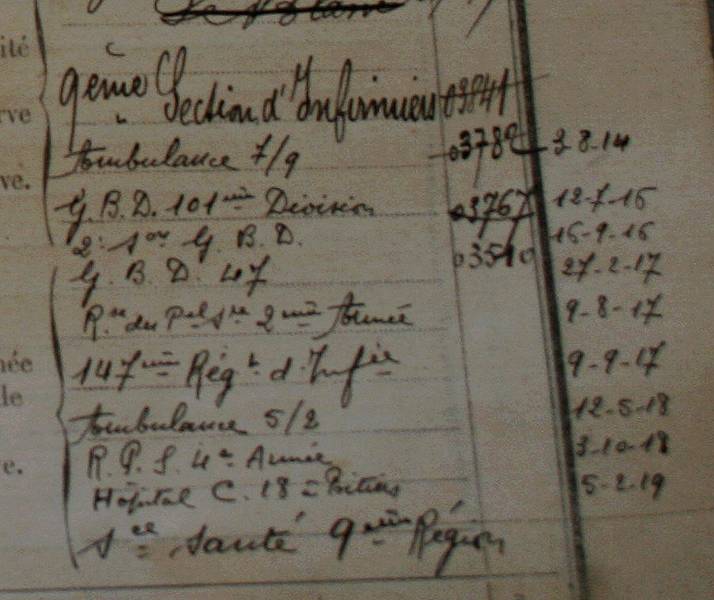 ité
9ème Section d'Infirmiers 03841
rve
Ambulance 7/9 03789 3-8-14
ve.
G.B.D. 101ème Division 03767 12-7-15
2e Son G.B.D. 16-9-16
G.B.D. 47 03510 27-2-17
Rve du Pel Sre 2ème Armée 9-8-17
née
147ème Régt d'Infie 9-9-17
le
Ambulance 5/2 12-5-18
R.P.S. 4e Armée 3-10-18
e.
Hôpital C. 18 à Poitiers 5-2-19
Sce Santé 9ème Région